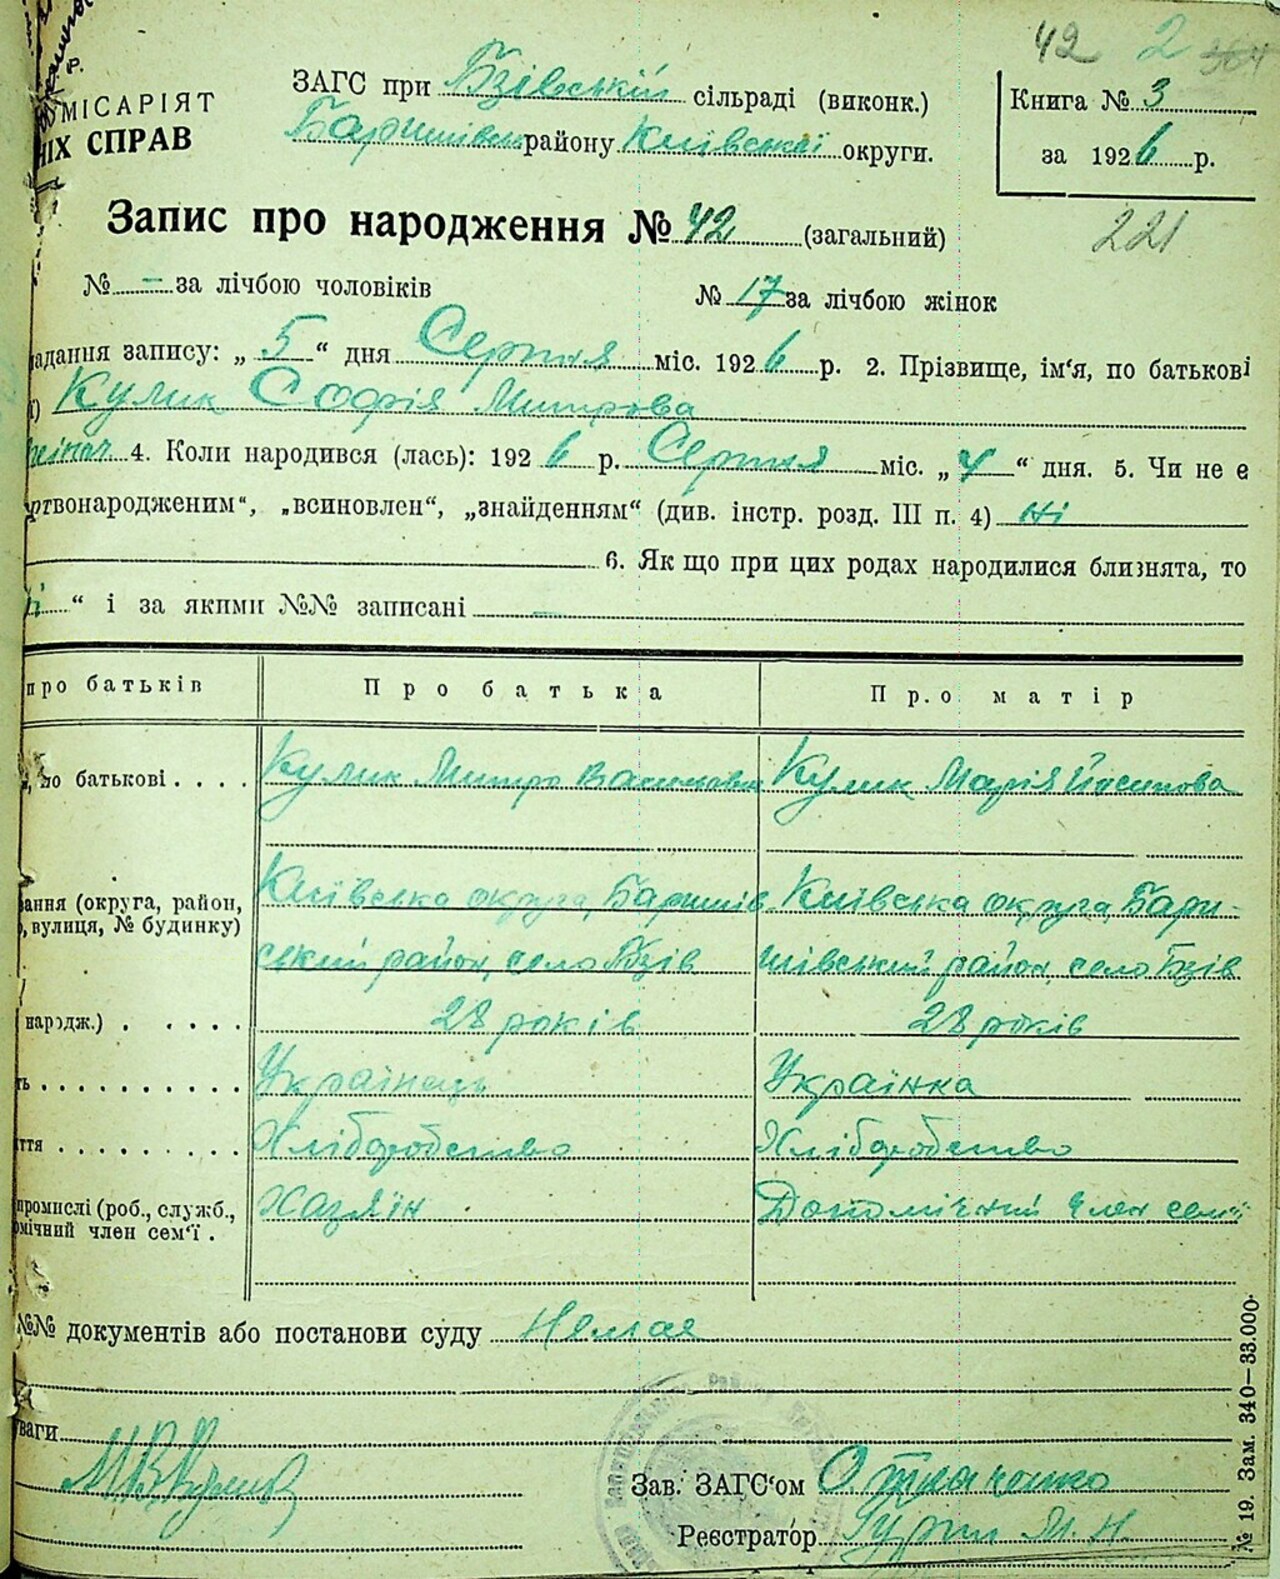 42 2 364
ОМІСАРІЯТ
НІХ СПРАВ
ЗАГС при Бзівській сільраді (виконк.)
Баришівськ району Київської округи.
Книга № 3
за 1926 р.
Запис про народження № 42 (загальний)
221
№ – за лічбою чоловіків № 17 за лічбою жінок
ладання запису: „ 5 “ дня Серпня міс. 1926 р. 2. Прізвище, ім‘я, по батькові
Кулик Софія Митрова
4. Коли народився (лась): 1926 р. Серпня міс. „ 4 “ дня. 5. Чи не є
ртвонародженим“, „всиновлен“, „знайденням“ (див. інстр. розд. III п. 4) Ні
6. Як що при цих родах народилися близнята, то
“ і за якими №№ записані –
про батьків Про батька Про матір
, по батькові . . . . Кулик Митро Васильович Кулик Марія Йосипова
ання (округа, район, Київська округа, Баришів Київська округа, Бари-
, вулиця, № будинку) ський район, село Бзів шівський район, село Бзів
народж.) . . . . . 28 років 28 років
ть . . . . . . . . . . Українець Українка
ття . . . . . . . . . Хліборобство Хліборобство
промислі (роб., служб., Хазяїн Допоміжний член семї
омічний член сем‘ї .
№№ документів або постанови суду Немае
ваги
Зав. ЗАГС‘ом
Реєстратор Гурин М. Н.
№ 19. Зам. 340—33.000.